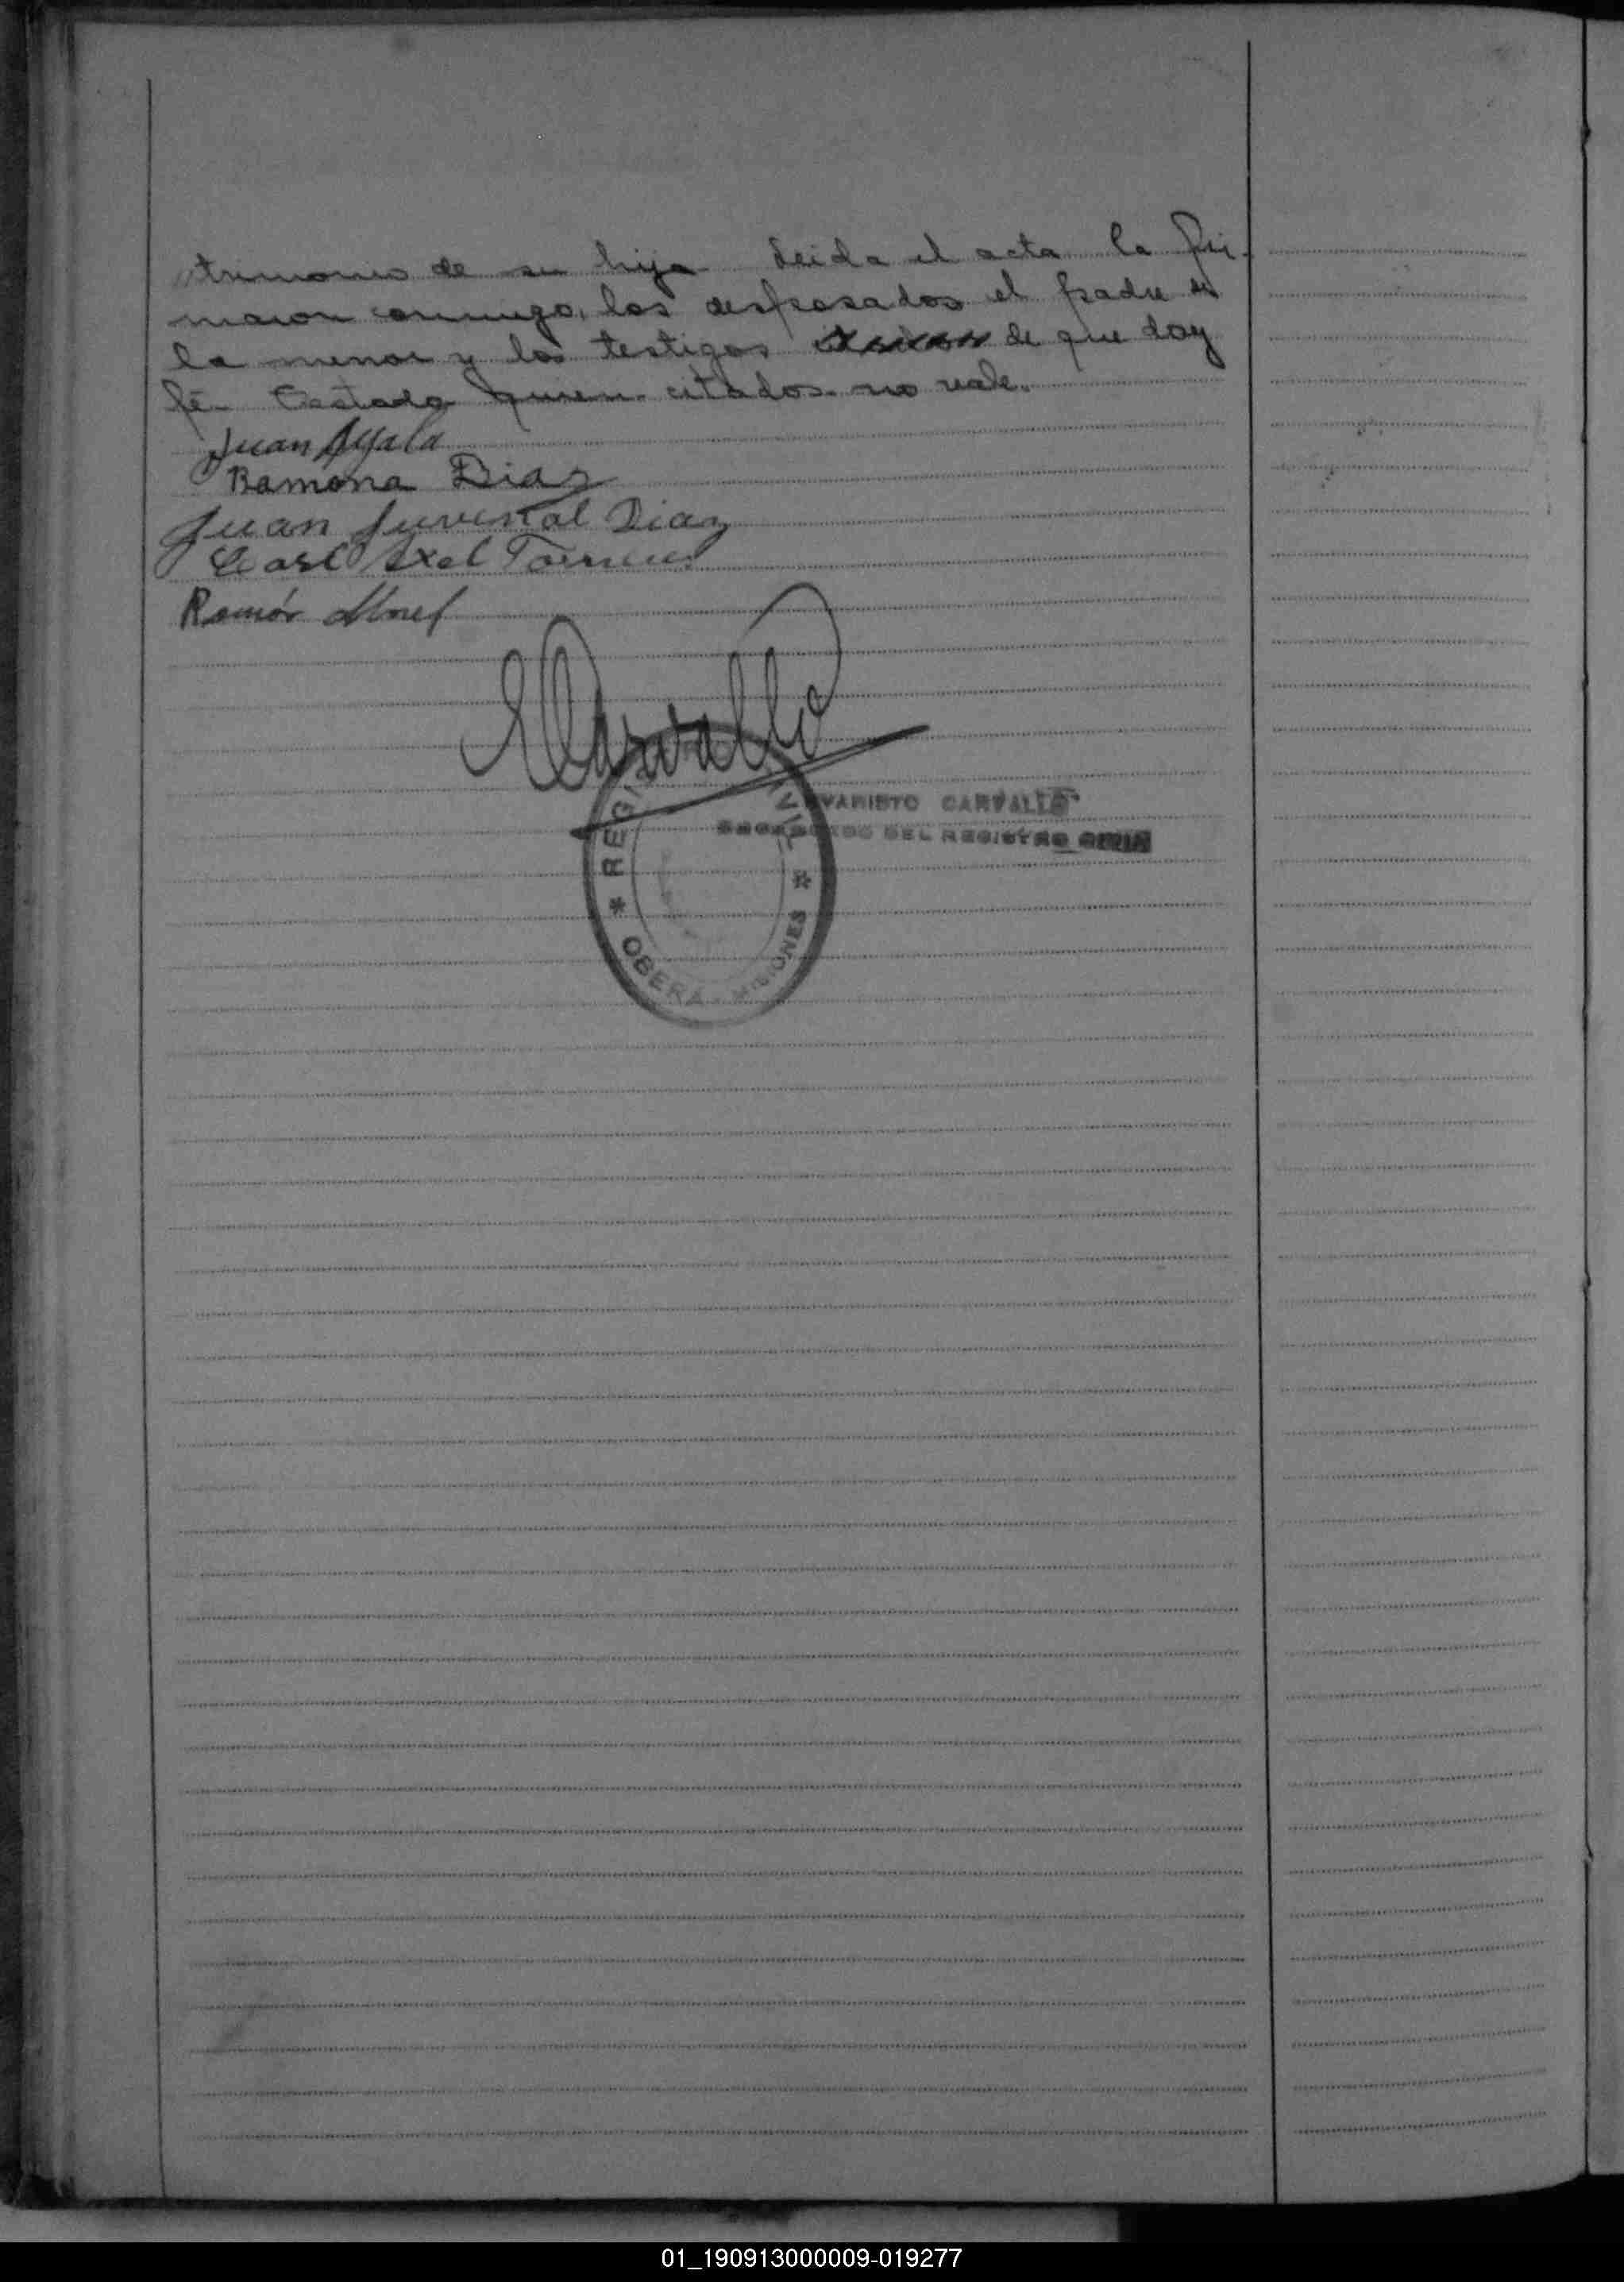 trimonio de su hija Leida el acta la fir-
maron conmigo, los desposados el padre de
la menor y los testigos de que doy
fé- Testado quien. citados. no vale.
Juan Ayala
Ramona Diaz
Juan Juvenal Diaz
Carl Axel
Ramón Morel
ECarvallo
EVARISTO CARVALLO
ENCARGADO DEL REGISTRO CIVIL
* REGISTRO CIVIL *
OBERÁ - MISIONES
01_190913000009-019277